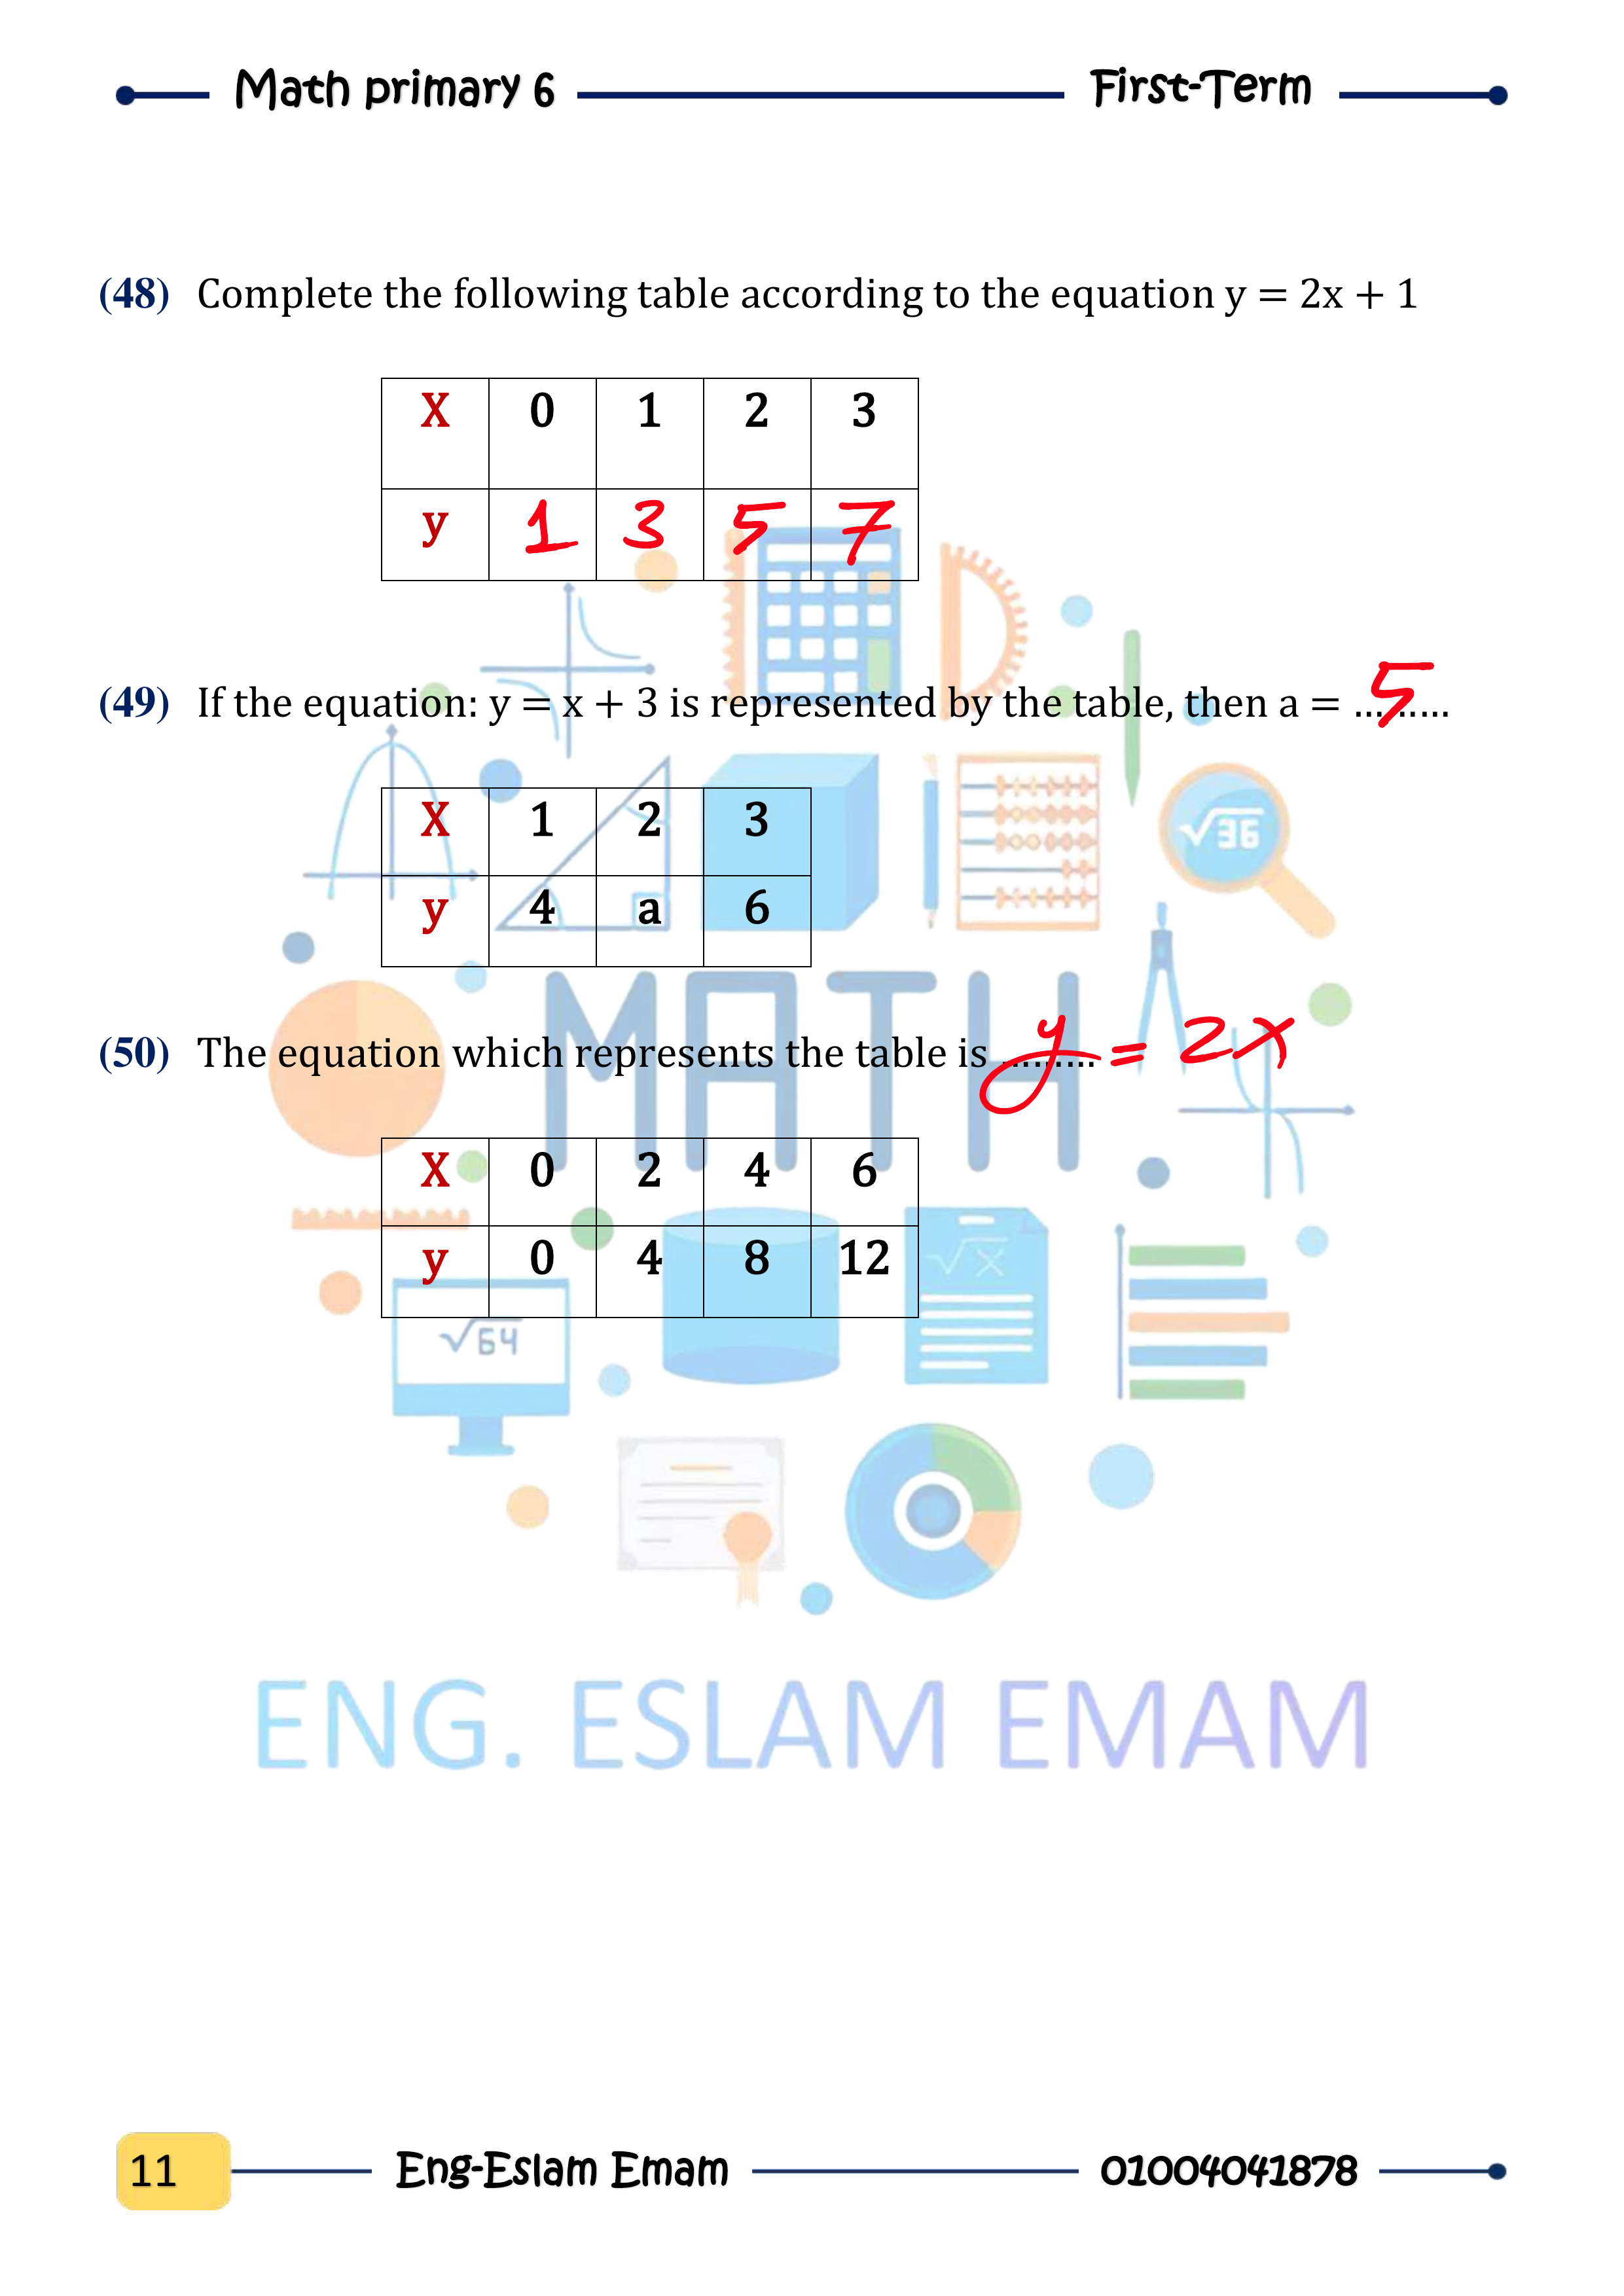 Math primary 6 First-Term
(48) Complete the following table according to the equation y = 2x + 1
X 0 1 2 3
y 1 3 5 7
(49) If the equation: y = x + 3 is represented by the table, then a = .......... 5
X 1 2 3
√36
y 4 a 6
MATH
(50) The equation which represents the table is .......... y = 2x
X 0 2 4 6
y 0 4 8 12
√x
√64
ENG. ESLAM EMAM
11 Eng-Eslam Emam 01004041878